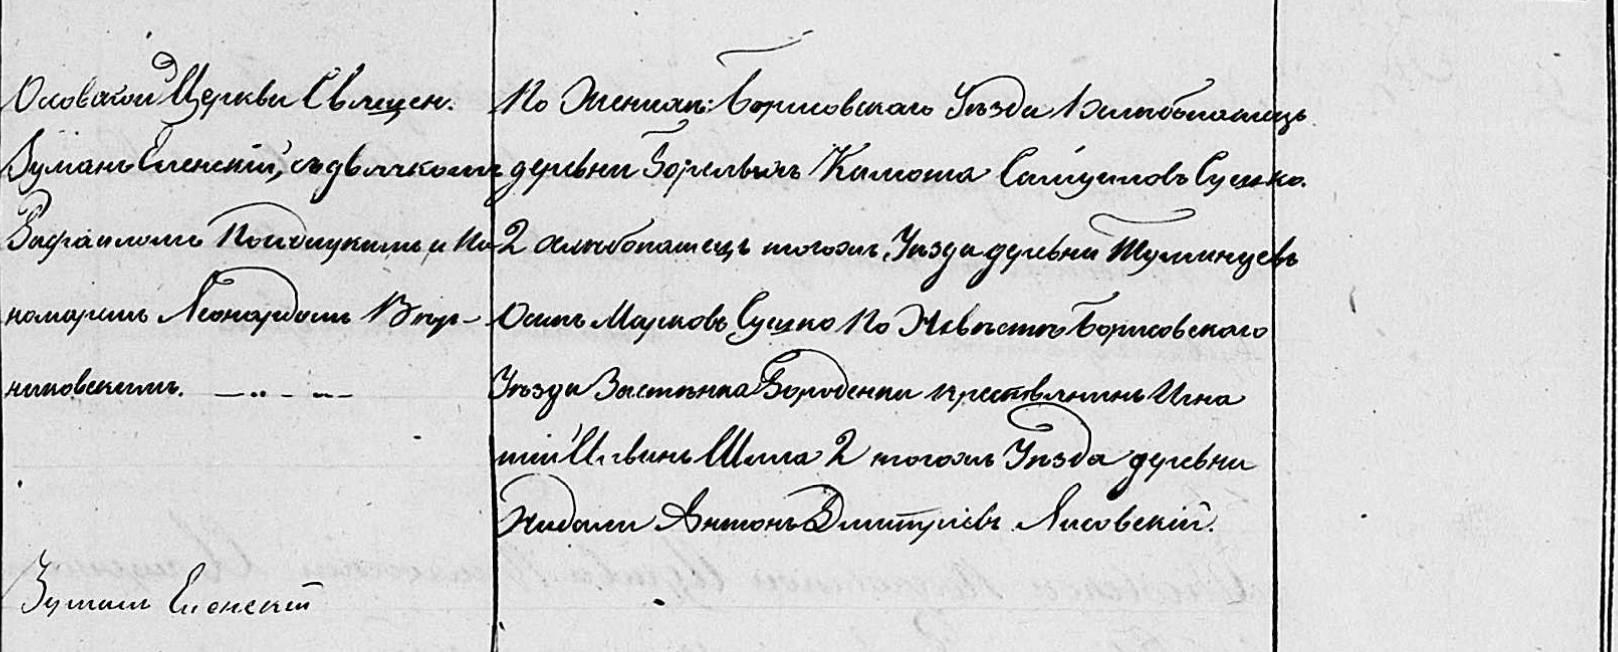 Осовской Церкви Священ.
Зуманъ Еленскій, съ дьячкомъ
Рафаиломъ и По
номаремъ Леонардомъ
никовскимъ.
По Жених: Борисовскаго Уѣзда 1 хлѣбопашецъ
деревни Самуиловъ Сушко.
2 хлѣбопашецъ тогожъ Уѣзда деревни
Осипъ Марковъ Сушко По Невѣстѣ Борисовскаго
Уѣзда Застѣнка Бороденки крестьянинъ Игна
тій Шила 2 тогожъ Уѣзда деревни
Жидали Антонъ Дмитріевъ Лисовскій.
Еленскій